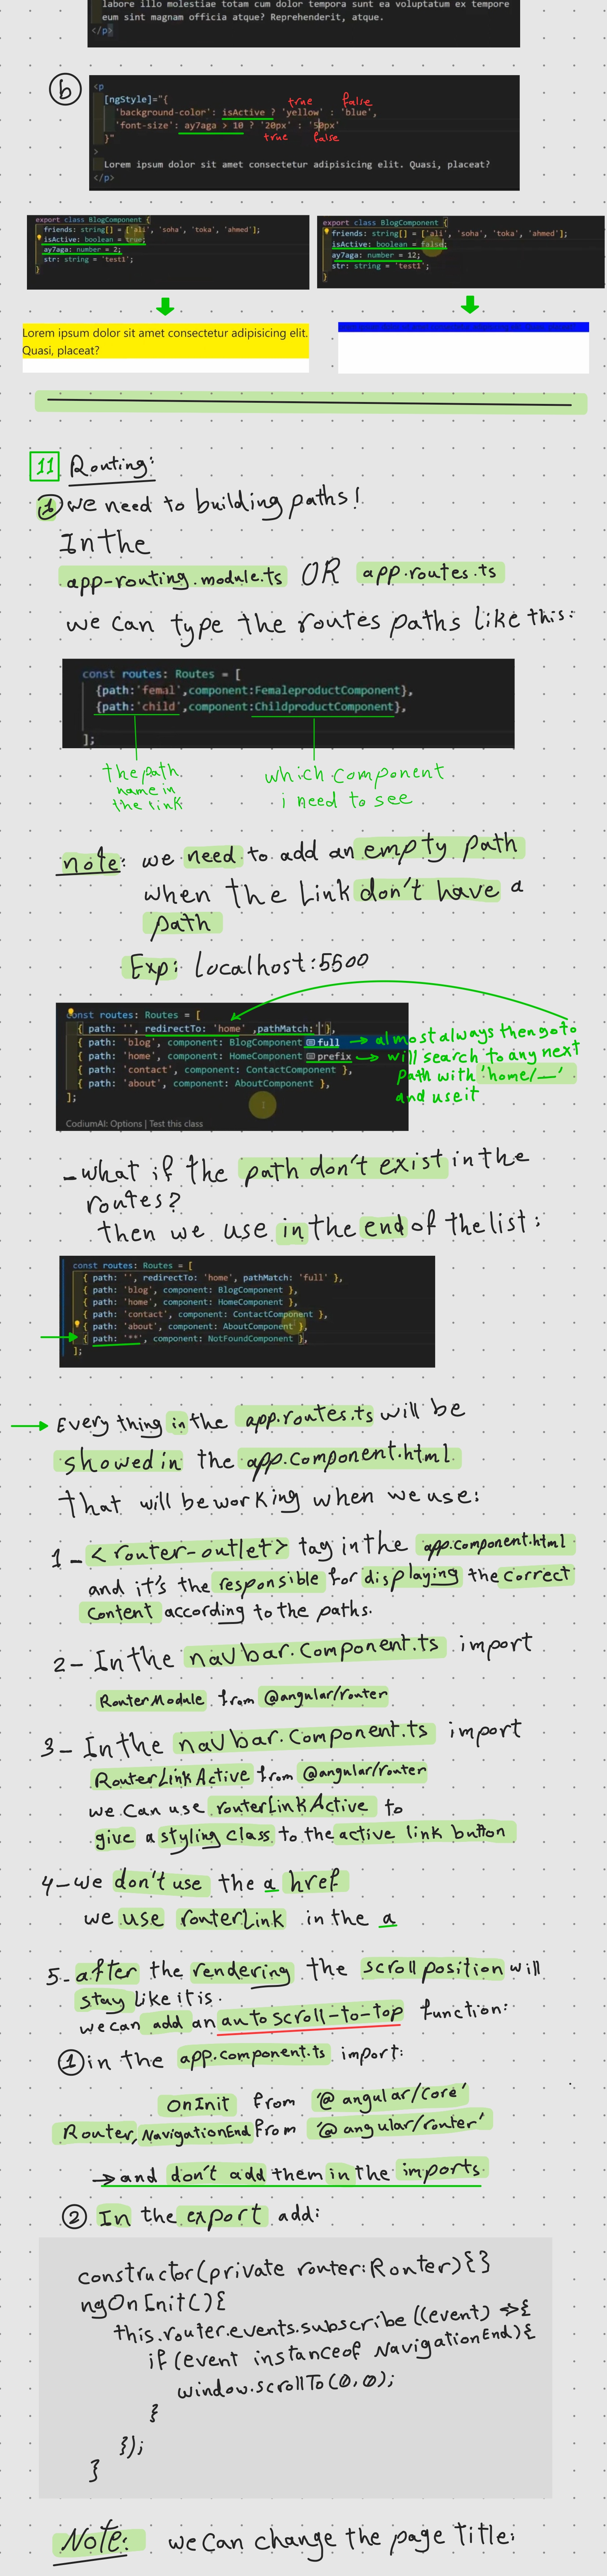 labore illo molestiae totam cum dolor tempora sunt ea voluptatum ex tempore
eum sint magnam officia atque? Reprehenderit, atque.
</p>
b
<p
[ngStyle]="{
true false
'background-color': isActive ? 'yellow' : 'blue',
'font-size': ay7aga > 10 ? '20px' : '50px'
true false
}"
>
Lorem ipsum dolor sit amet consectetur adipisicing elit. Quasi, placeat?
</p>
export class BlogComponent {
friends: string[] = ['ali', 'soha', 'toka', 'ahmed'];
isActive: boolean = true;
ay7aga: number = 2;
str: string = 'test1';
}
export class BlogComponent {
friends: string[] = ['ali', 'soha', 'toka', 'ahmed'];
isActive: boolean = false;
ay7aga: number = 12;
str: string = 'test1';
}
Lorem ipsum dolor sit amet consectetur adipisicing elit.
Quasi, placeat?
11 Routing:
1 we need to building paths!
In the
app-routing.module.ts OR app.routes.ts
we can type the routes paths like this:
const routes: Routes = [
{path:'femal',component:FemaleproductComponent},
{path:'child',component:ChildproductComponent},
];
the path
name in
the link
which component
i need to see
note: we need to add an empty path
when the Link don't have a
path
Exp: localhost:5500
const routes: Routes = [
{ path: '', redirectTo: 'home' ,pathMatch:''},
{ path: 'blog', component: BlogComponent full → almost always then go to
{ path: 'home', component: HomeComponent prefix → will search to any next
{ path: 'contact', component: ContactComponent }, path with 'home/__'
{ path: 'about', component: AboutComponent }, and use it
];
CodiumAI: Options | Test this class
- what if the path don't exist in the
routes?
then we use in the end of the list:
const routes: Routes = [
{ path: '', redirectTo: 'home', pathMatch: 'full' },
{ path: 'blog', component: BlogComponent },
{ path: 'home', component: HomeComponent },
{ path: 'contact', component: ContactComponent },
{ path: 'about', component: AboutComponent },
{ path: '**', component: NotFoundComponent },
];
→ Every thing in the app.routes.ts will be
showed in the app.component.html
that will be working when we use:
1- <router-outlet> tag in the app.component.html
and it's the responsible for displaying the correct
content according to the paths.
2- In the navbar.component.ts import
RouterModule from @angular/router
3- In the navbar.component.ts import
RouterLinkActive from @angular/router
we can use routerLinkActive to
give a styling class to the active link button
4- we don't use the a href
we use routerLink in the a
5- after the rendering the scroll position will
stay like it is.
we can add an auto scroll-to-top function:
1 in the app.component.ts import:
OnInit from '@angular/core'
Router, NavigationEnd from '@angular/router'
→ and don't add them in the imports
2 In the export add:
constructor(private router:Router){}
ngOnInit(){
this.router.events.subscribe((event) => {
if (event instanceof NavigationEnd){
window.scrollTo(0,0);
}
});
}
Note: we can change the page title: